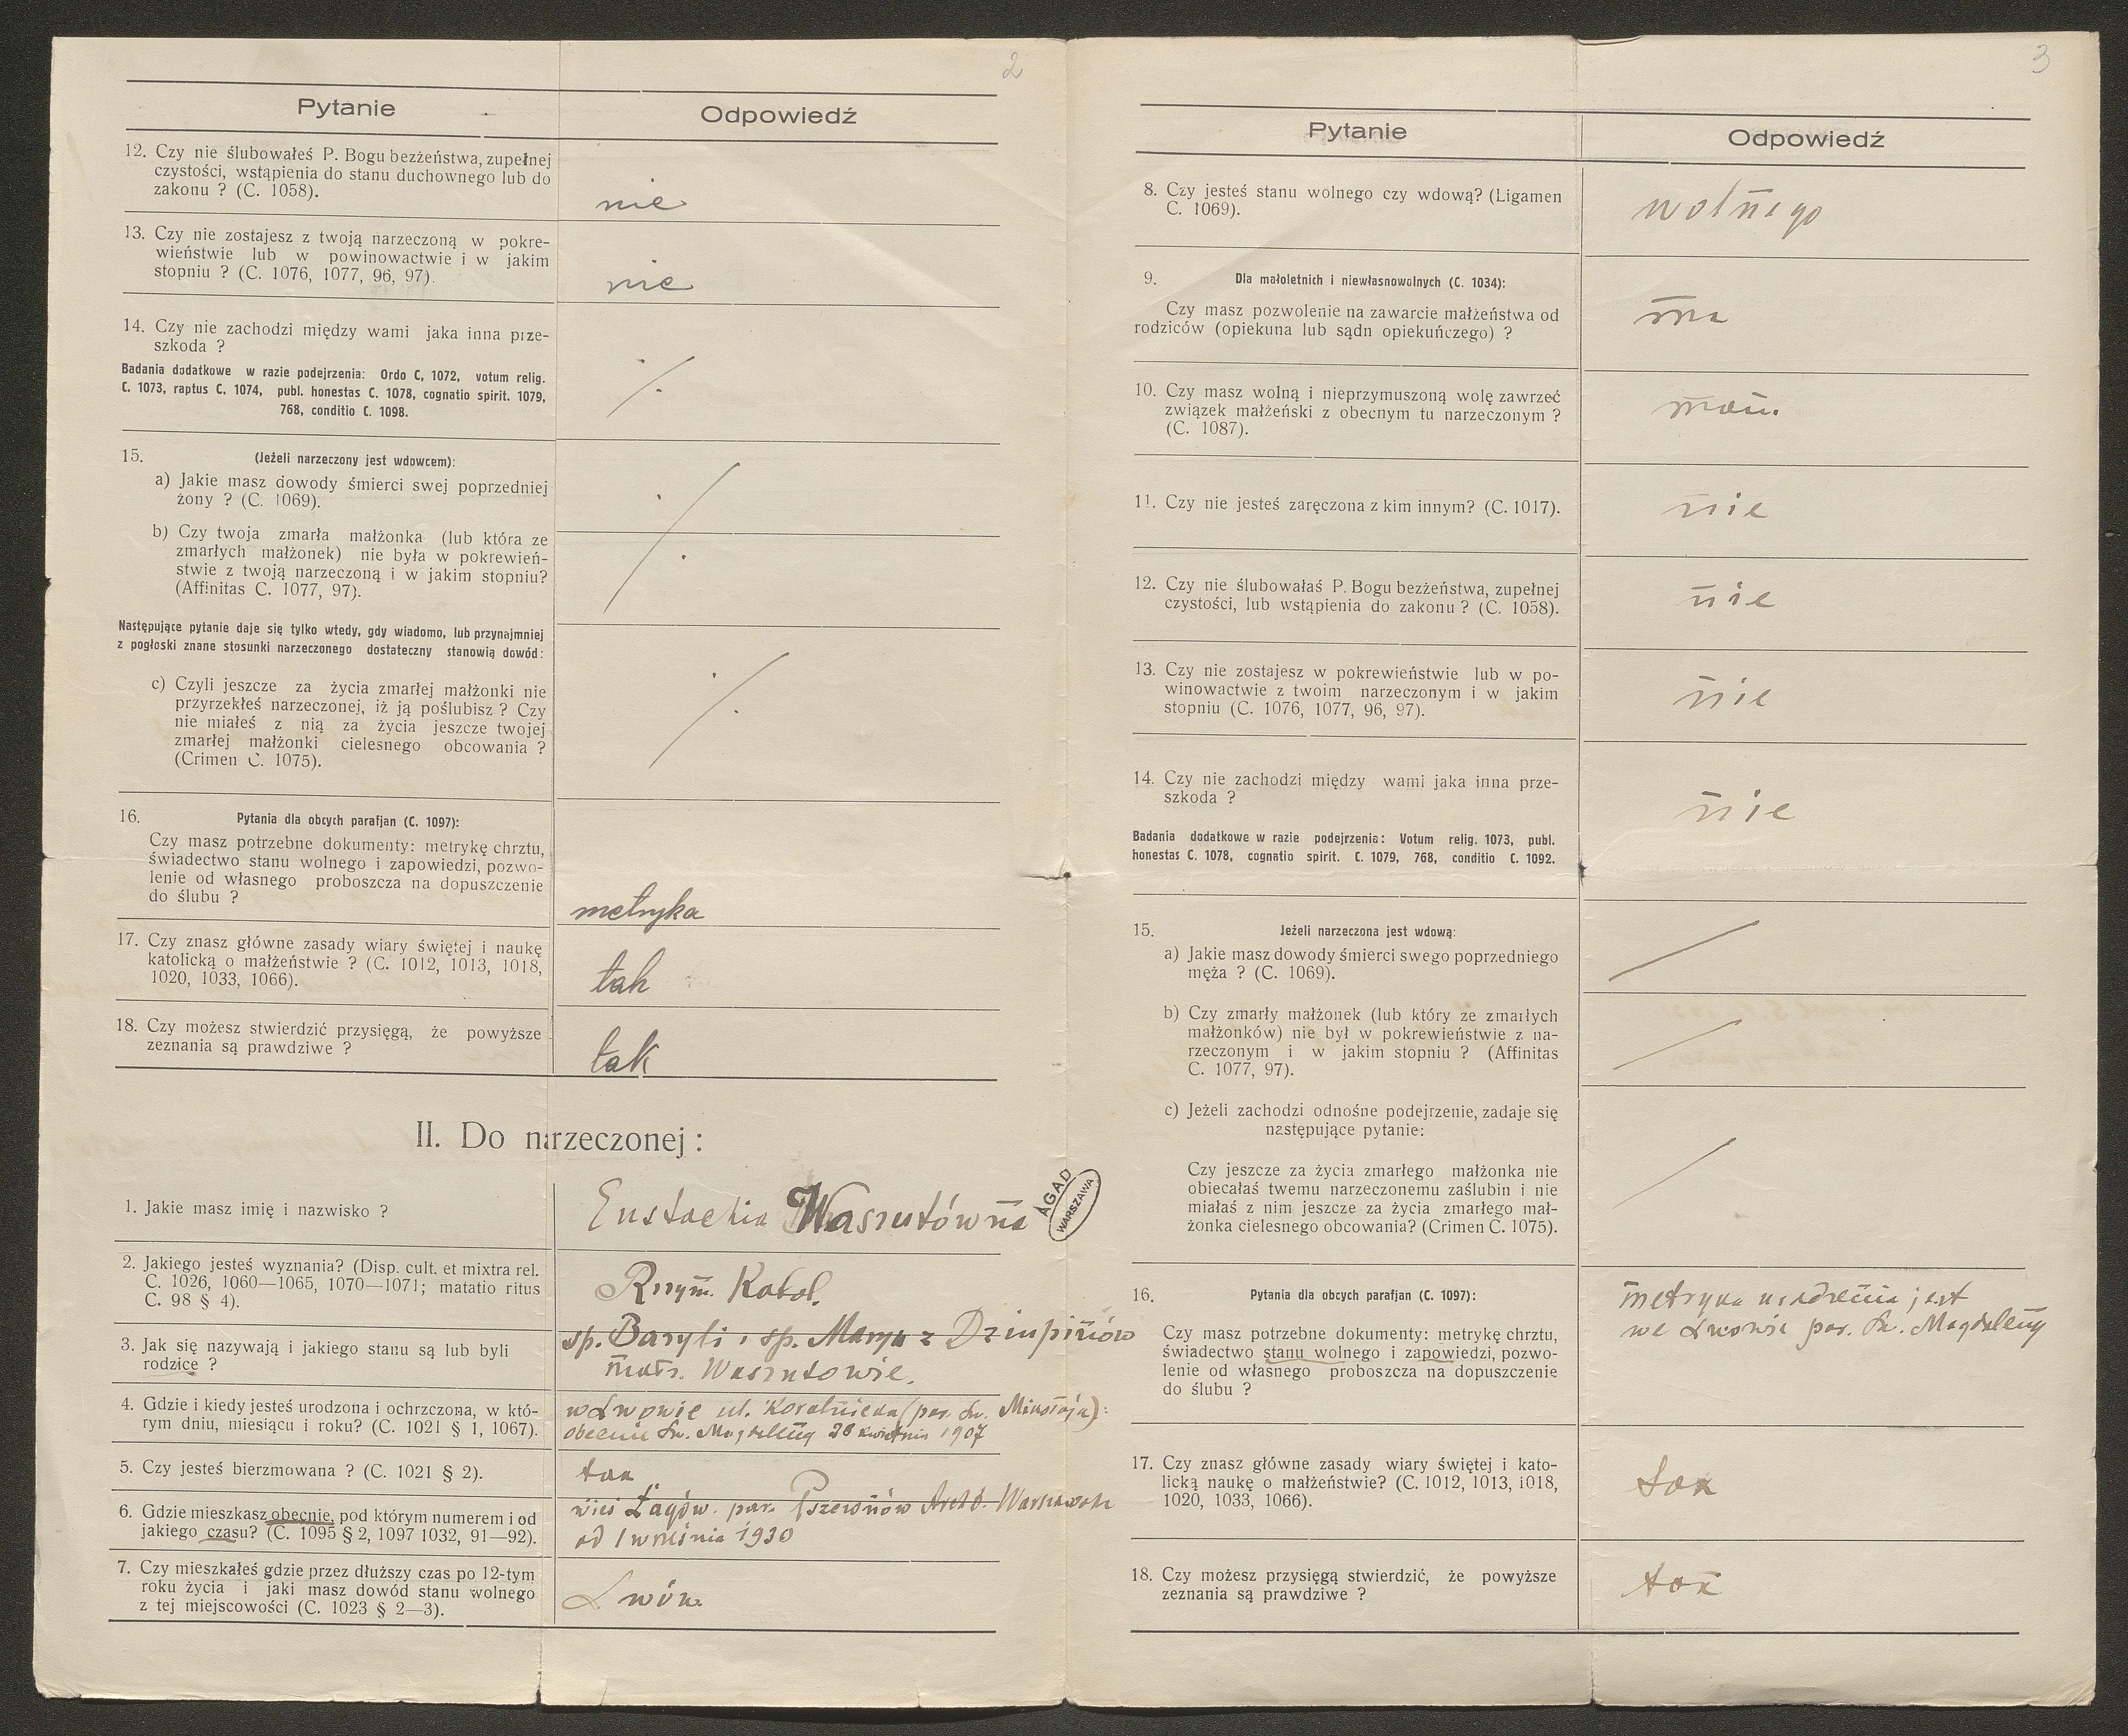 2
Pytanie
Odpowiedź
12. Czy nie ślubowałeś P. Bogu bezżeństwa, zupełnej
czystości, wstąpienia do stanu duchownego lub do
zakonu ? (C. 1058).
nie
13. Czy nie zostajesz z twoją narzeczoną w pokre-
wieństwie lub w powinowactwie i w jakim
stopniu ? (C. 1076, 1077, 96, 97).
nie
14. Czy nie zachodzi między wami jaka inna prze-
szkoda ?
Badania dodatkowe w razie podejrzenia: Ordo C, 1072, votum relig.
C. 1073, raptus C. 1074, publ. honestas C. 1078, cognatio spirit. 1079,
768, conditio C. 1098.
15. (Jeżeli narzeczony jest wdowcem):
a) Jakie masz dowody śmierci swej poprzedniej
żony ? (C. 1069).
b) Czy twoja zmarła małżonka (lub która ze
zmarłych małżonek) nie była w pokrewień-
stwie z twoją narzeczoną i w jakim stopniu?
(Affinitas C. 1077, 97).
Następujące pytanie daje się tylko wtedy, gdy wiadomo, lub przynajmniej
z pogłoski znane stosunki narzeczonego dostateczny stanowią dowód:
c) Czyli jeszcze za życia zmarłej małżonki nie
przyrzekłeś narzeczonej, iż ją poślubisz ? Czy
nie miałeś z nią za życia jeszcze twojej
zmarłej małżonki cielesnego obcowania ?
(Crimen C. 1075).
16. Pytania dla obcych parafjan (C. 1097):
Czy masz potrzebne dokumenty: metrykę chrztu,
świadectwo stanu wolnego i zapowiedzi, pozwo-
lenie od własnego proboszcza na dopuszczenie
do ślubu ?
metryka
17. Czy znasz główne zasady wiary świętej i naukę
katolicką o małżeństwie ? (C. 1012, 1013, 1018,
1020, 1033, 1066).
tak
18. Czy możesz stwierdzić przysięgą, że powyższe
zeznania są prawdziwe ?
tak
II. Do narzeczonej :
1. Jakie masz imię i nazwisko ?
Eustachia Waszutówna
AGAD
WARSZAWA
2. Jakiego jesteś wyznania? (Disp. cult. et mixtra rel.
C. 1026, 1060—1065, 1070—1071; matatio ritus
C. 98 § 4).
Rzym. Katol.
3. Jak się nazywają i jakiego stanu są lub byli
rodzice ?
sp. Baryli i sp. Marya z Dziupinów
małż. Waszutowie.
4. Gdzie i kiedy jesteś urodzona i ochrzczona, w któ-
rym dniu, miesiącu i roku? (C. 1021 § 1, 1067).
w Lwowie ul. (par. św. Mikołaja)
obecnie św. Magdaleny 28 kwietnia 1907
5. Czy jesteś bierzmowana ? (C. 1021 § 2).
tak
6. Gdzie mieszkasz obecnie, pod którym numerem i od
jakiego czasu? (C. 1095 § 2, 1097 1032, 91—92).
wieś Łagów. par. Pszewnów Archd. Warszawska
od 1 września 1930
7. Czy mieszkałeś gdzie przez dłuższy czas po 12-tym
roku życia i jaki masz dowód stanu wolnego
z tej miejscowości (C. 1023 § 2—3).
Lwów
3
Pytanie
Odpowiedź
8. Czy jesteś stanu wolnego czy wdową? (Ligamen
C. 1069).
wolnego
9. Dla małoletnich i niewłasnowolnych (C. 1034):
Czy masz pozwolenie na zawarcie małżeństwa od
rodziców (opiekuna lub sądn opiekuńczego) ?
10. Czy masz wolną i nieprzymuszoną wolę zawrzeć
związek małżeński z obecnym tu narzeczonym ?
(C. 1087).
mam.
11. Czy nie jesteś zaręczona z kim innym? (C. 1017).
nie
12. Czy nie ślubowałaś P. Bogu bezżeństwa, zupełnej
czystości, lub wstąpienia do zakonu ? (C. 1058).
nie
13. Czy nie zostajesz w pokrewieństwie lub w po-
winowactwie z twoim narzeczonym i w jakim
stopniu (C. 1076, 1077, 96, 97).
nie
14. Czy nie zachodzi między wami jaka inna prze-
szkoda ?
nie
Badania dodatkowe w razie podejrzenia: Votum relig. 1073, publ.
honestas C. 1078, cognatio spirit. C. 1079, 768, conditio C. 1092.
15. Jeżeli narzeczona jest wdową:
a) Jakie masz dowody śmierci swego poprzedniego
męża ? (C. 1069).
b) Czy zmarły małżonek (lub który ze zmarłych
małżonków) nie był w pokrewieństwie z na-
rzeczonym i w jakim stopniu ? (Affinitas
C. 1077, 97).
c) Jeżeli zachodzi odnośne podejrzenie, zadaje się
następujące pytanie:
Czy jeszcze za życia zmarłego małżonka nie
obiecałaś twemu narzeczonemu zaślubin i nie
miałaś z nim jeszcze za życia zmarłego mał-
żonka cielesnego obcowania? (Crimen C. 1075).
16. Pytania dla obcych parafjan (C. 1097):
Czy masz potrzebne dokumenty: metrykę chrztu,
świadectwo stanu wolnego i zapowiedzi, pozwo-
lenie od własnego proboszcza na dopuszczenie
do ślubu ?
metryka urodzenia jest
we Lwowie par. św. Magdaleny
17. Czy znasz główne zasady wiary świętej i kato-
licką naukę o małżeństwie? (C. 1012, 1013, 1018,
1020, 1033, 1066).
tak
18. Czy możesz przysięgą stwierdzić, że powyższe
zeznania są prawdziwe ?
tak